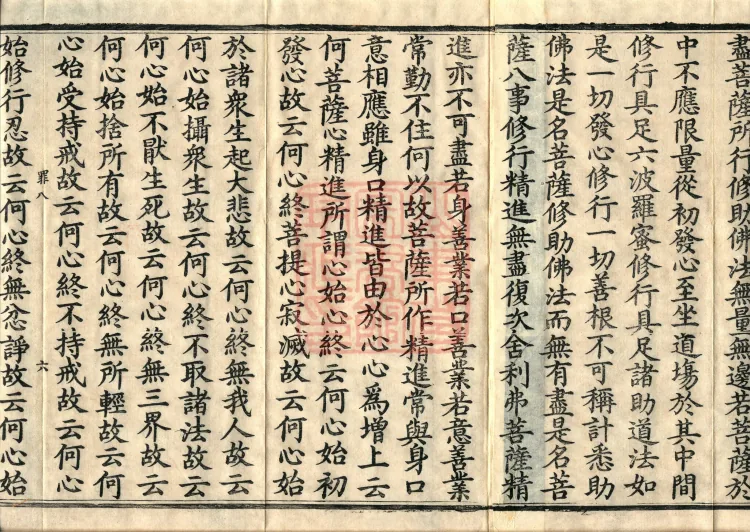 盡菩薩所行修助佛法無量無邊若菩薩於
中不應限量從初發心至坐道場於其中間
修行具足六波羅蜜修行具足諸助道法如
是一切發心修行一切善根不可稱計悉助
佛法是名菩薩修助佛法而無有盡是名菩
薩八事修行精進無盡復次舍利弗菩薩精
進亦不可盡若身善業若口善業若意善業
常勤不住何以故菩薩所作精進常與身口
意相應雖身口精進皆由於心心為增上云
何菩薩心精進所謂心始心終云何心始初
發心故云何心終菩提心寂滅故云何心始
於諸衆生起大悲故云何心終無我人故云
何心始攝衆生故云何心終不取諸法故云
何心始不猒生死故云何心終無三界故云
何心始捨所有故云何心終無所輕故云何
心始受持戒故云何心終不持戒故云何心
罪八
六
始修行忍故云何心終無忿諍故云何心始